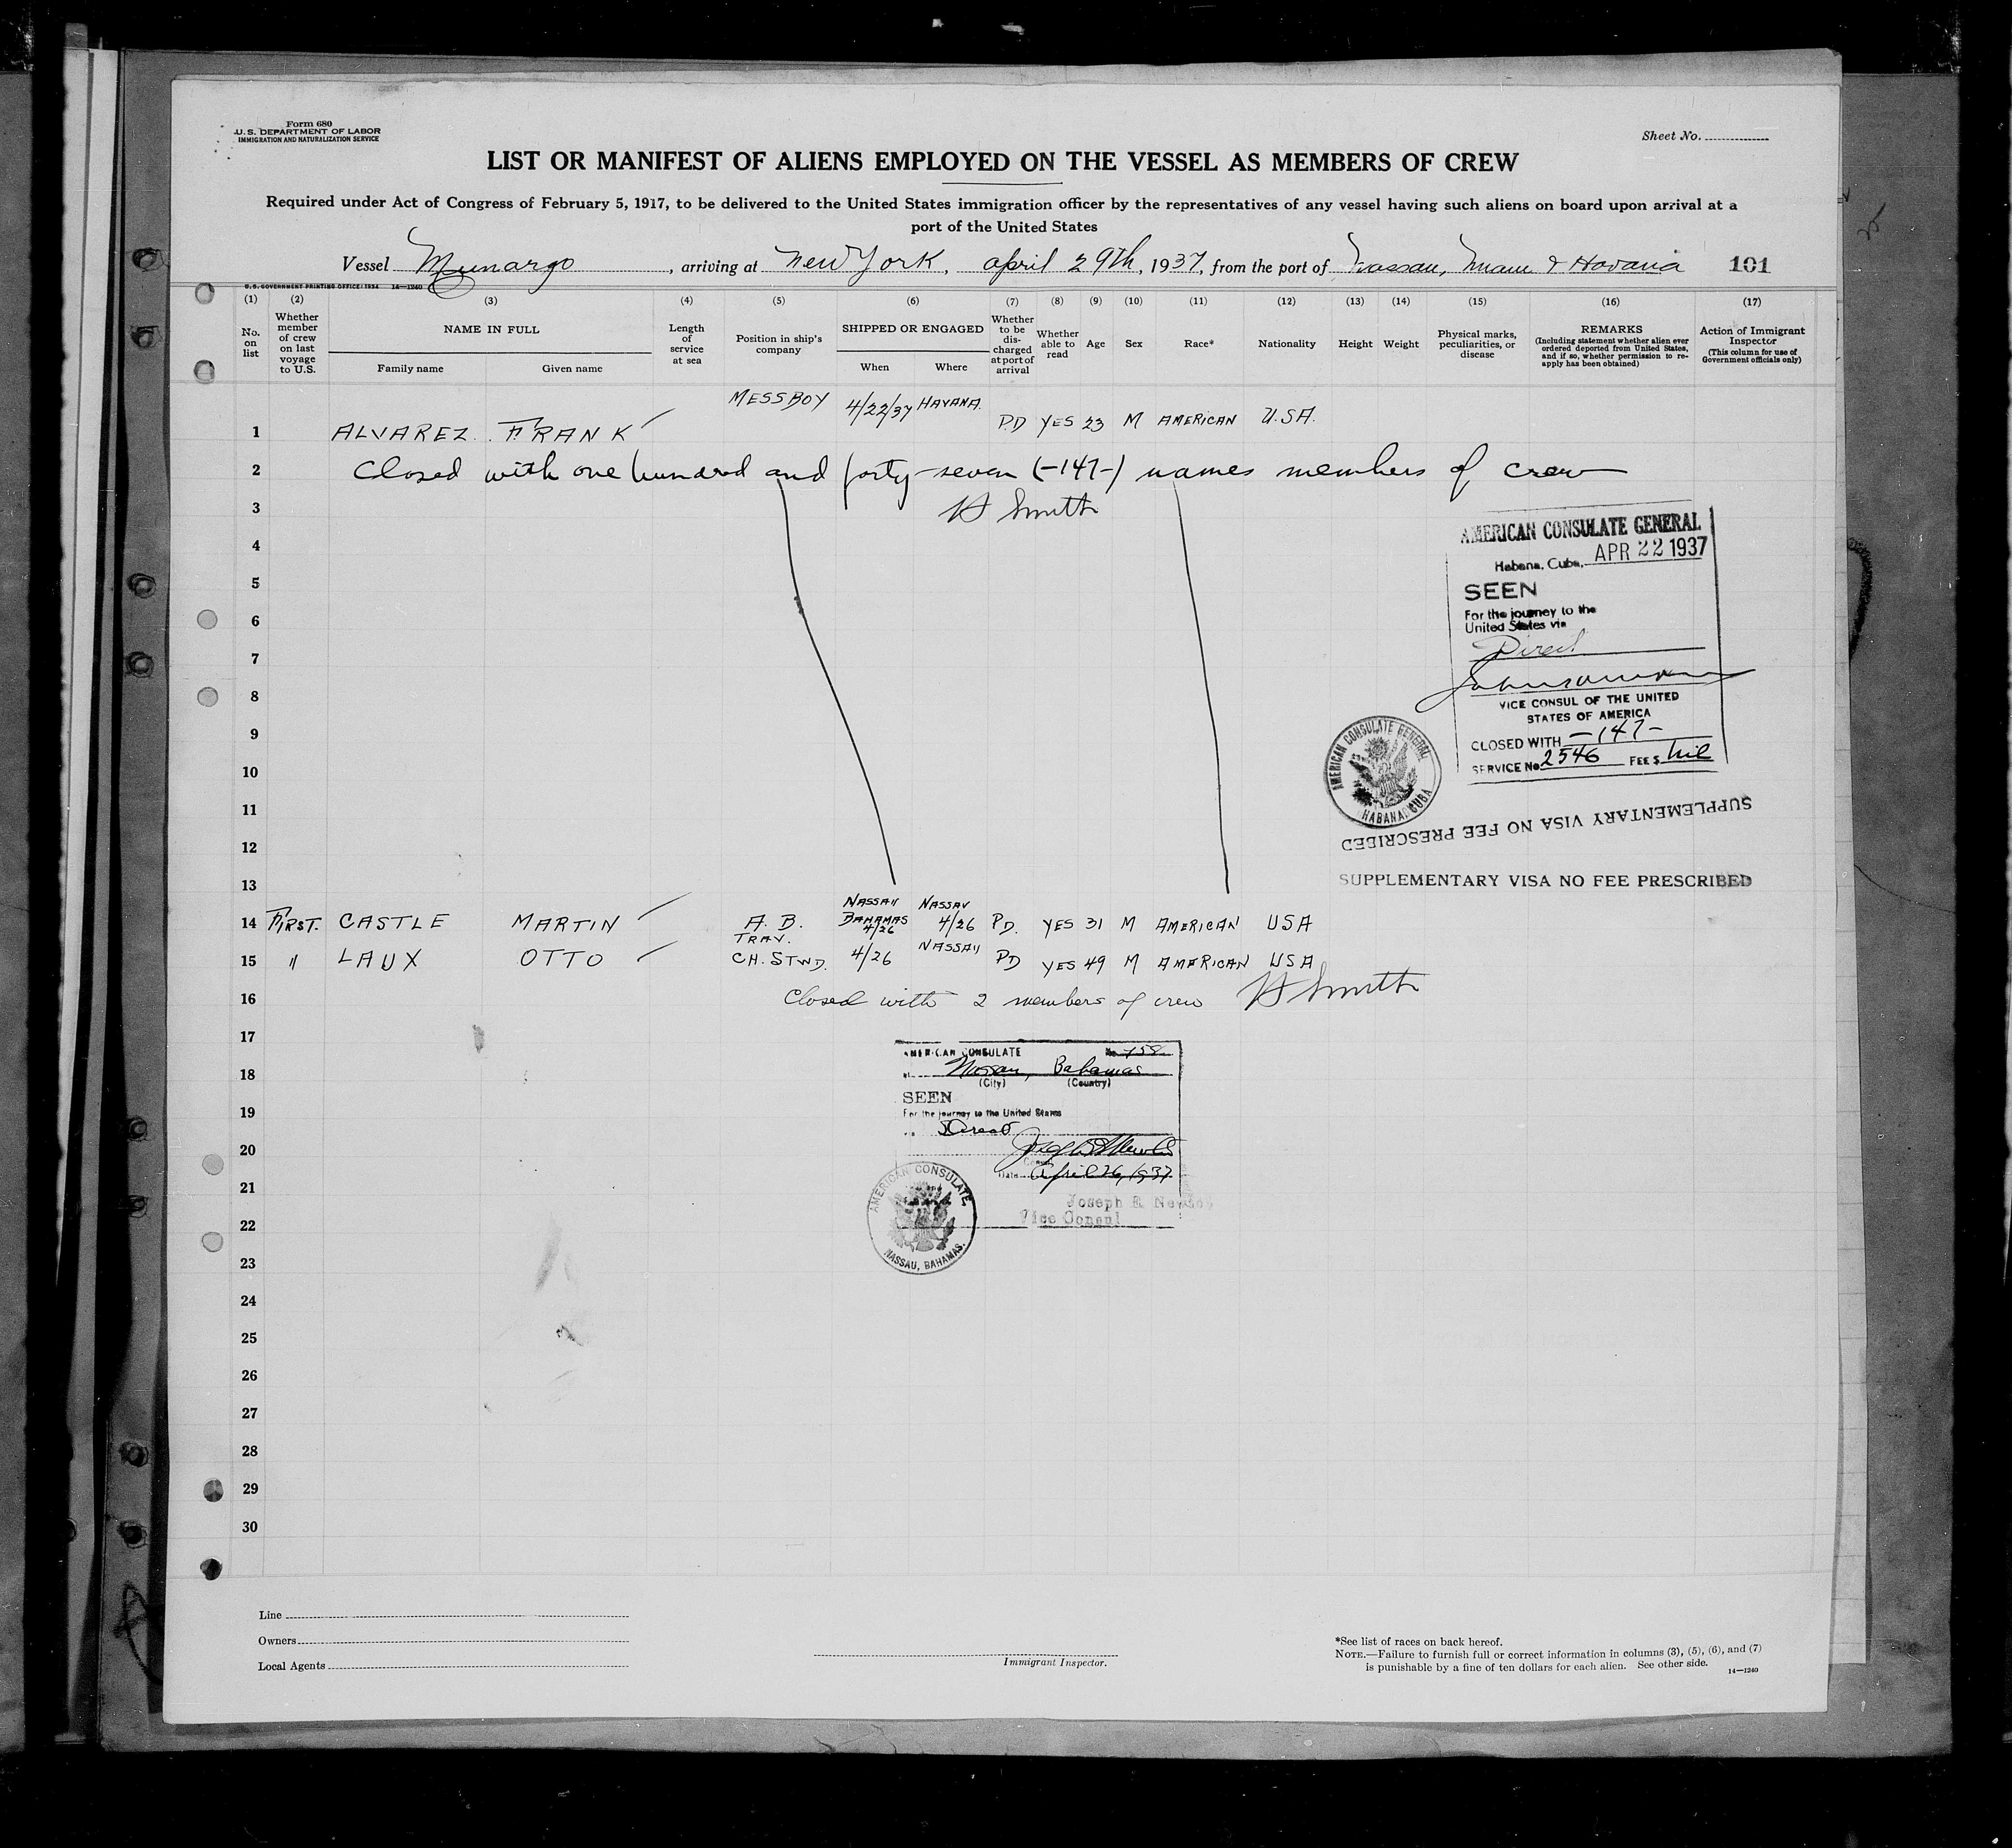 Form 680
U. S. DEPARTMENT OF LABOR
IMMIGRATION AND NATURALIZATION SERVICE
Sheet No.
LIST OR MANIFEST OF ALIENS EMPLOYED ON THE VESSEL AS MEMBERS OF CREW
Required under Act of Congress of February 5, 1917, to be delivered to the United States immigration officer by the representatives of any vessel having such aliens on board upon arrival at a
port of the United States
Vessel Munargo, arriving at New York, april 29th, 1937, from the port of Nassau, Miami & Havana 101
U. S. GOVERNMENT PRINTING OFFICE: 1934 14—1240
(1) (2) (3) (4) (5) (6) (7) (8) (9) (10) (11) (12) (13) (14) (15) (16) (17)
No. on list
Whether member of crew on last voyage to U.S.
NAME IN FULL
Family name Given name
Length of service at sea
Position in ship's company
SHIPPED OR ENGAGED
When Where
Whether to be discharged at port of arrival
Whether able to read
Age
Sex
Race*
Nationality
Height
Weight
Physical marks, peculiarities, or disease
REMARKS
(Including statement whether alien ever ordered deported from United States, and if so, whether permission to re-apply has been obtained)
Action of Immigrant Inspector
(This column for use of Government officials only)
1 ALVAREZ. FRANK MESSBOY 4/22/37 HAVANA. PD YES 23 M AMERICAN U.S.A.
2 Closed with one hundred and forty-seven (-147-) names members of crew
3 H Smith
4
5
6
7
8
9
10
11
12
13
AMERICAN CONSULATE GENERAL
Habana, Cuba, APR 22 1937
SEEN
For the journey to the
United States via
Direct
VICE CONSUL OF THE UNITED
STATES OF AMERICA
CLOSED WITH -147-
SERVICE No 2546 FEE $ nil
AMERICAN CONSULATE GENERAL
HABANA, CUBA
SUPPLEMENTARY VISA NO FEE PRESCRIBED
SUPPLEMENTARY VISA NO FEE PRESCRIBED
14 FIRST. CASTLE MARTIN A. B. NASSAU BAHAMAS 4/26 NASSAU 4/26 PD. YES 31 M AMERICAN USA
15 " LAUX OTTO TRAV. CH. STWD. 4/26 NASSAU PD YES 49 M AMERICAN USA
16 Closed with 2 members of crew H Smith
17
18
19
20
21
22
23
24
25
26
27
28
29
30
AMERICAN CONSULATE No. 158
at Nassau, Bahamas
(City) (Country)
SEEN
For the journey to the United States
via Direct
Date April 26, 1937
Joseph E. Newton
Vice Consul
AMERICAN CONSULATE
NASSAU, BAHAMAS.
Line
Owners
Local Agents
Immigrant Inspector.
*See list of races on back hereof.
NOTE.—Failure to furnish full or correct information in columns (3), (5), (6), and (7)
is punishable by a fine of ten dollars for each alien. See other side. 14—1240